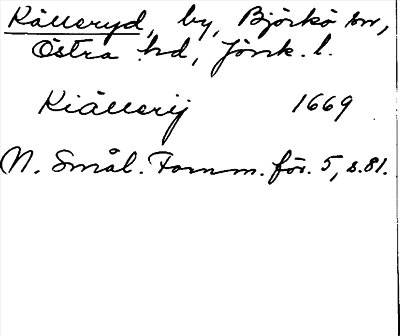 Källeryd, by, Björkö sn,
Östra hd, Jönk. l.
Kiällerij 1669
N. Smål. Fornm. för. 5, s. 81.